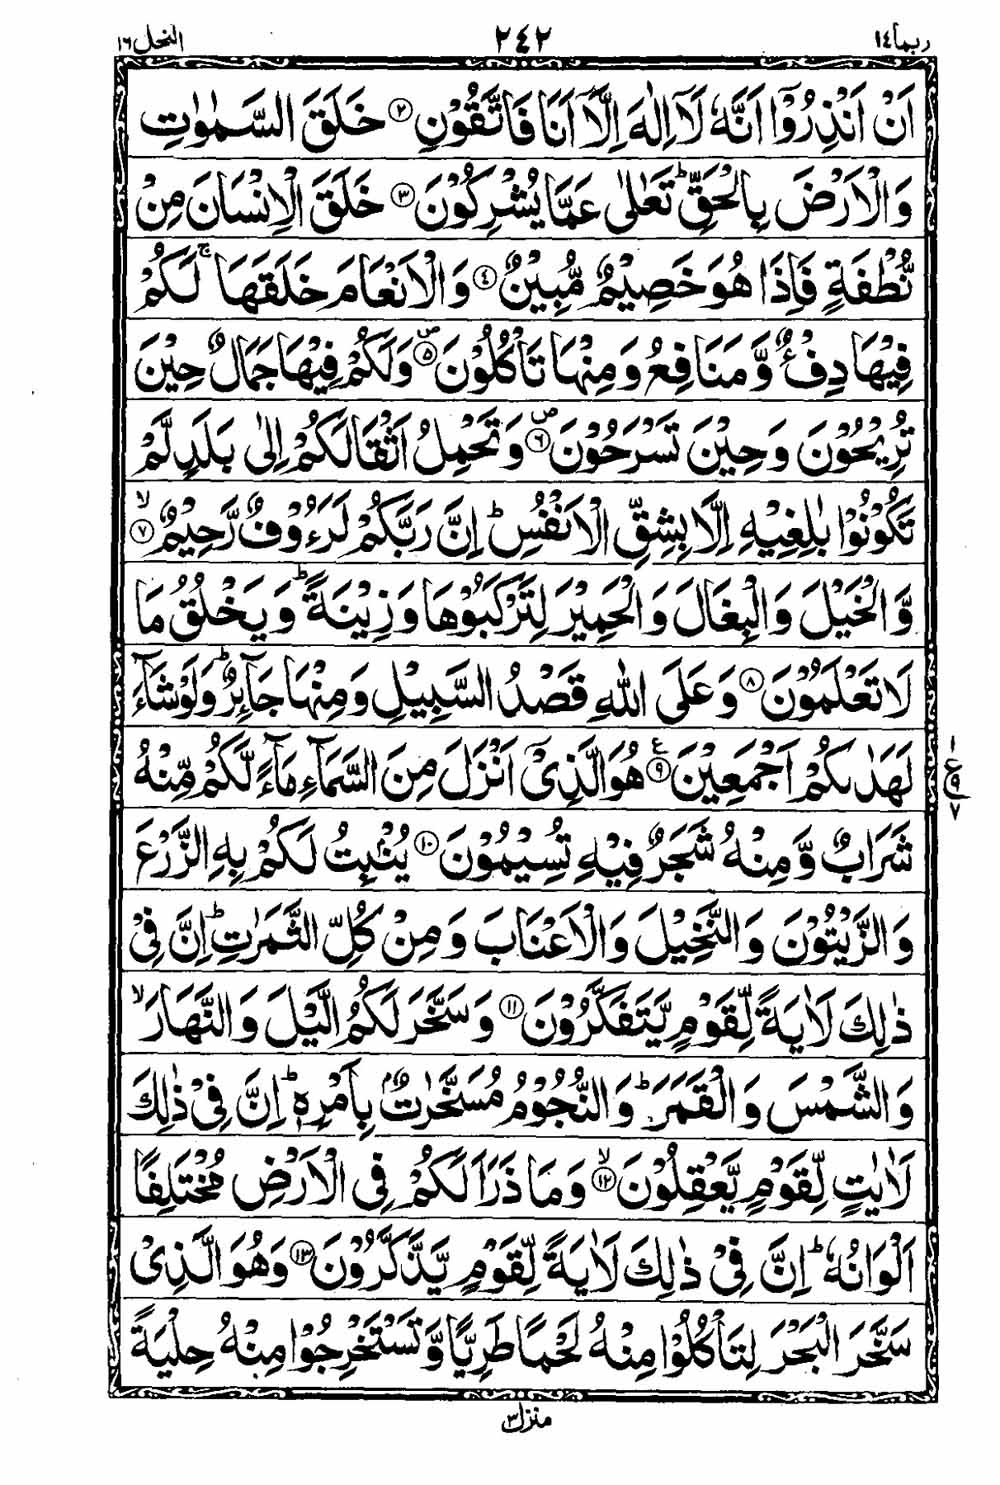 ربما ١٤
٢٤٢
النحل ١٦
اَنْ اَنْذِرُوْۤا اَنَّهٗ لَاۤ اِلٰهَ اِلَّاۤ اَنَا فَاتَّقُوْنِ ﴿٢﴾ خَلَقَ السَّمٰوٰتِ
وَالْاَرْضَ بِالْحَقِّ ؕ تَعٰلٰى عَمَّا يُشْرِكُوْنَ ﴿٣﴾ خَلَقَ الْاِنْسَانَ مِنْ
نُّطْفَةٍ فَاِذَا هُوَ خَصِيْمٌ مُّبِيْنٌ ﴿٤﴾ وَالْاَنْعَامَ خَلَقَهَا ۚ لَكُمْ
فِيْهَا دِفْءٌ وَّمَنَافِعُ وَمِنْهَا تَاْكُلُوْنَ ﴿٥﴾ۖ وَلَكُمْ فِيْهَا جَمَالٌ حِيْنَ
تُرِيْحُوْنَ وَحِيْنَ تَسْرَحُوْنَ ﴿٦﴾ۖ وَتَحْمِلُ اَثْقَالَكُمْ اِلٰى بَلَدٍ لَّمْ
تَكُوْنُوْا بٰلِغِيْهِ اِلَّا بِشِقِّ الْاَنْفُسِ ؕ اِنَّ رَبَّكُمْ لَرَءُوْفٌ رَّحِيْمٌ ﴿٧﴾ۙ
وَّالْخَيْلَ وَالْبِغَالَ وَالْحَمِيْرَ لِتَرْكَبُوْهَا وَزِيْنَةً ؕ وَيَخْلُقُ مَا
لَا تَعْلَمُوْنَ ﴿٨﴾ وَعَلَى اللّٰهِ قَصْدُ السَّبِيْلِ وَمِنْهَا جَآئِرٌ ؕ وَلَوْ شَآءَ
لَهَدٰىكُمْ اَجْمَعِيْنَ ﴿٩﴾ع هُوَ الَّذِيْۤ اَنْزَلَ مِنَ السَّمَآءِ مَآءً لَّكُمْ مِّنْهُ
١
ع ٩
٧
شَرَابٌ وَّمِنْهُ شَجَرٌ فِيْهِ تُسِيْمُوْنَ ﴿١٠﴾ يُنْۢبِتُ لَكُمْ بِهِ الزَّرْعَ
وَالزَّيْتُوْنَ وَالنَّخِيْلَ وَالْاَعْنَابَ وَمِنْ كُلِّ الثَّمَرٰتِ ؕ اِنَّ فِيْ
ذٰلِكَ لَاٰيَةً لِّقَوْمٍ يَّتَفَكَّرُوْنَ ﴿١١﴾ وَسَخَّرَ لَكُمُ الَّيْلَ وَالنَّهَارَ ۙ
وَالشَّمْسَ وَالْقَمَرَ ؕ وَالنُّجُوْمُ مُسَخَّرٰتٌۢ بِاَمْرِهٖ ؕ اِنَّ فِيْ ذٰلِكَ
لَاٰيٰتٍ لِّقَوْمٍ يَّعْقِلُوْنَ ﴿١٢﴾ۙ وَمَا ذَرَاَ لَكُمْ فِى الْاَرْضِ مُخْتَلِفًا
اَلْوَانُهٗ ؕ اِنَّ فِيْ ذٰلِكَ لَاٰيَةً لِّقَوْمٍ يَّذَّكَّرُوْنَ ﴿١٣﴾ وَهُوَ الَّذِيْ
سَخَّرَ الْبَحْرَ لِتَاْكُلُوْا مِنْهُ لَحْمًا طَرِيًّا وَّتَسْتَخْرِجُوْا مِنْهُ حِلْيَةً
منزل ٣